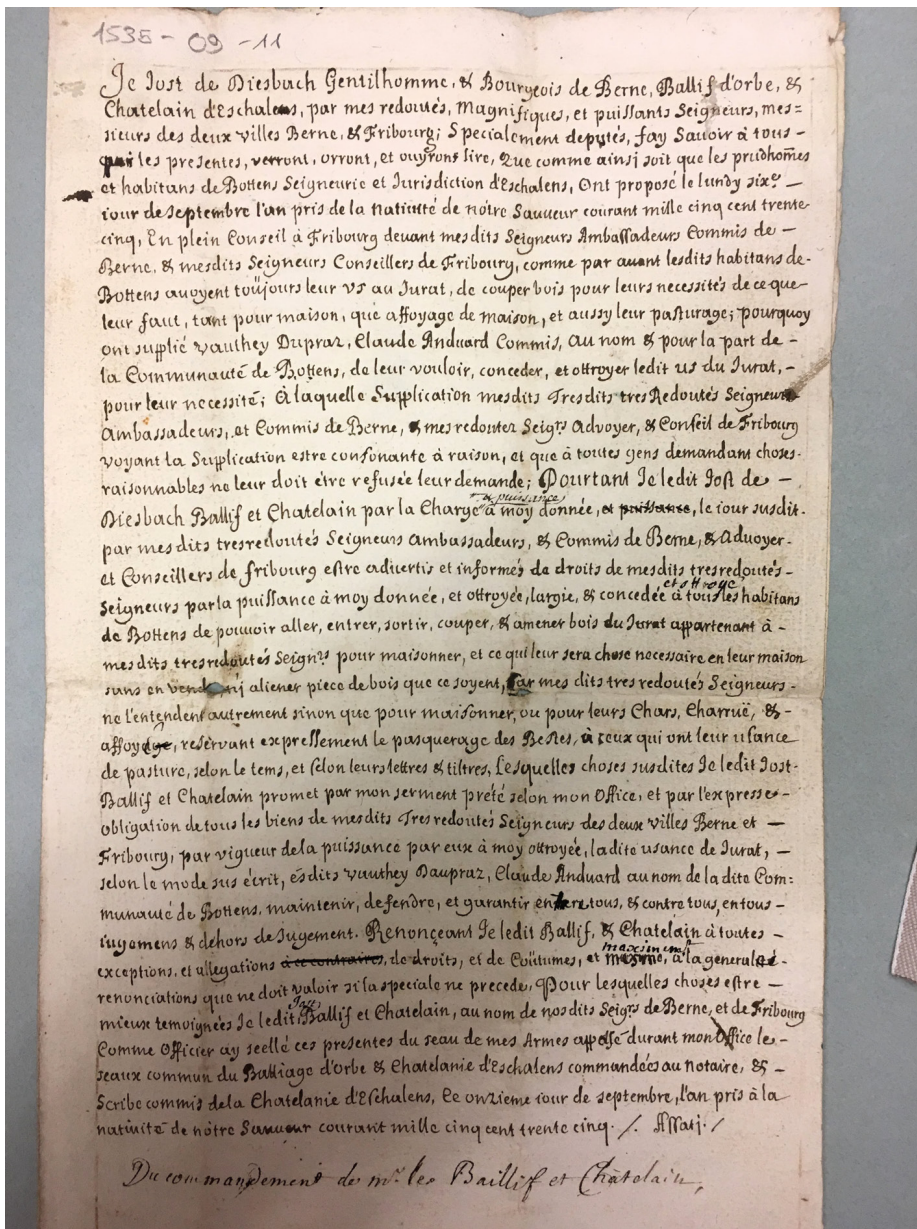 1535-09-11
Je Jost de Diesbach Gentilhomme, & Bourgeois de Berne, Ballif d'orbe, &
Chatelain d'Eschalens, par mes redoutés, Magnifiques, et puissants Seigneurs, mes=
sieurs des deux villes Berne, & Fribourg; Specialement deputés, fay Sauoir à tous -
les presentes, verront, orront, et ouyront lire, Que comme ainsj soit que les prudhom̄es
et habitans de Bottens Seigneurie et Jurisdiction d'Eschalens, Ont proposé le lundy sixe. —
iour de septembre l'an pris de la natiuité de nôtre Sauueur courant mille cinq cent trente
cinq, En plein Conseil à Fribourg deuant mesdits Seigneurs Ambassadeurs Commis de —
Berne, & mesdits Seigneurs Conseillers de Fribourg, comme par auant lesdits habitans de-
Bottens auoyent toûjours leur vs au Jurat, de couper bois pour leurs necessités de ce que
leur faut, tant pour maison, que affoyage de maison, et aussy leur pasturage; pourquoy
ont supplié Vauthey Dupraz, Claude Anduard Commis, au nom & pour la part de -
la Communauté de Bottens, de leur vouloir, conceder, et ottroyer ledit us du Jurat, -
pour leur necessité; À laquelle Supplication mesdits Tresdits tres Redoutés Seigneurs
Ambassadeurs, et Commis de Berne, & mes redoutez Seigrs Advoyer, & Conseil de Fribourg
voyant la Supplication estre consonante à raison, et que à toutes gens demandant choses-
raisonnables ne leur doit être refusée leur demande; Pourtant Je ledit Jost de —
et puissance
Diesbach Ballif et Chatelain par la Charge à moy donnée, et puissance, le iour susdit-
par mes dits tresredoutés Seigneurs ambassadeurs, & Commis de Berne, & Aduoyer-
et Conseillers de fribourg estre aduertis et informés de droits de mesdits tresredoutés-
et ottroyé
Seigneurs par la puissance à moy donnée, et ottroyée, largie, & concedée à tous les habitans
de Bottens de pouuoir aller, entrer, sortir, couper, & amener bois du Jurat appartenant à -
mes dits tresredoutés Seignrs pour maisonner, et ce qui leur sera chose necessaire en leur maison
sans en vendre nj aliener piece de bois que ce soyent, Car mes dits tres redoutés Seigneurs-
ne l'entendent autrement sinon que pour maisonner, ou pour leurs Chars, Charruë, & -
affoyage, reservant expressement le pasquerage des Bestes, à ceux qui ont leur usance
de pasture, selon le tems, et selon leurs lettres & tiltres, Lesquelles choses susdites Je ledit Jost-
Ballif et Chatelain promet par mon serment preté selon mon Office, et par l'expresse-
obligation de tous les biens de mesdits Tres redoutés Seigneurs des deux villes Berne et —
Fribourg, par vigueur de la puissance par eux à moy ottroyée, ladite usance de Jurat, —
selon le mode sus écrit, ésdits Vauthey Daupraz, Claude Anduard au nom de la dite Com=
munauté de Bottens, maintenir, defendre, et garantir enuers tous, & contre tous, en tous -
iugemens & dehors de Jugement. Renonçeant Je ledit Ballif, & Chatelain à toutes -
maximement
exceptions, et allegations à ce contraires, de droits, et de Coûtumes, et mesme, à la generale-
renonciations que ne doit valoir si la speciale ne precede, Pour lesquelles choses estre —
Jost
mieux temoignées Je ledit Ballif et Chatelain, au nom de nosdits Seigrs de Berne, et de Fribourg
Comme Officier ay seellé ces presentes du seau de mes Armes apposé durant mon Office le -
seaux commun du Balliage d'orbe & Chatelanie d'Eschalens commandées au notaire, & -
Scribe commis de la Chatelanie d'Eschalens, Ce onzieme iour de septembre, l'an pris à la
natiuité de nôtre Sauueur courant mille cinq cent trente cinq. /. Assatj. /
Du commandement de mr. les Baillif et Châtelain,